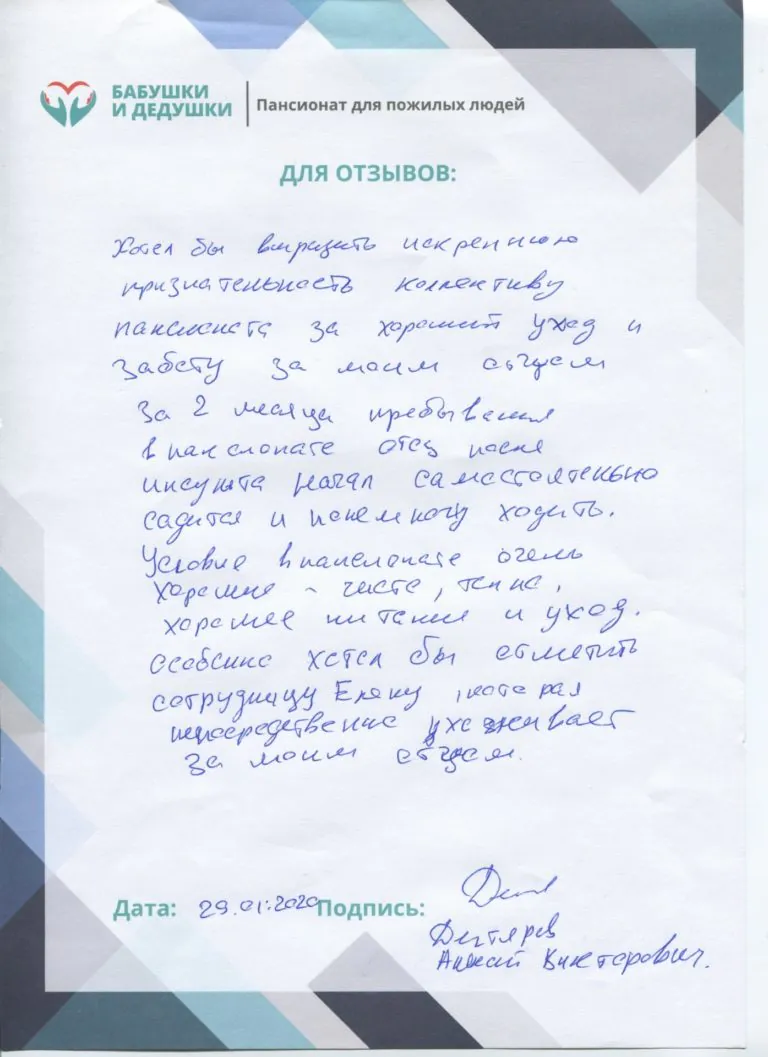 БАБУШКИ
И ДЕДУШКИ
Пансионат для пожилых людей
ДЛЯ ОТЗЫВОВ:
Хотел бы выразить искреннюю
признательность коллективу
пансионата за хороший уход и
заботу за моим отцом
За 2 месяца пребывания
в пансионате отец после
инсульта начал самостоятельно
садится и понемногу ходить.
Условие в пансионате очень
хорошие - чисто, тепло,
хорошее питание и уход.
Особенно хотел бы отметить
сотрудницу Елену, которая
непосредственно ухаживает
за моим отцом.
Дата: 29.01.2020 Подпись:
Дегтярев
Алексей Викторович.